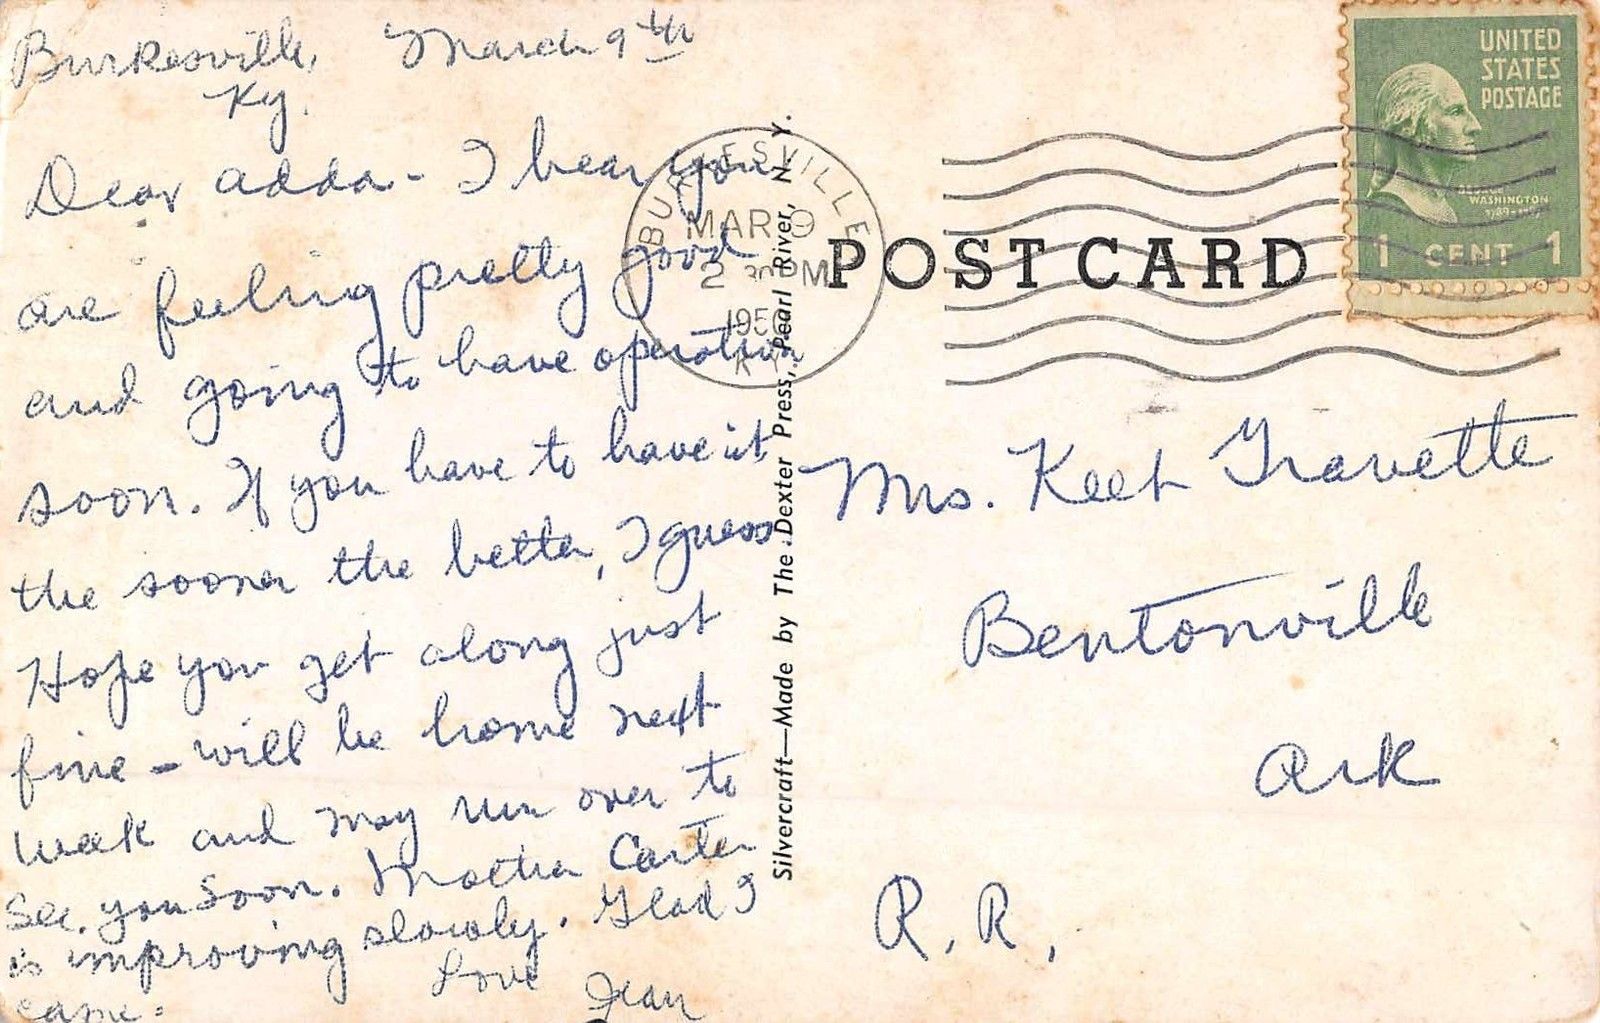 Burkesville, March 9th
Ky.
Dear Adda - I hear you
are feeling pretty good
and going to have operation
soon. If you have to have it
the sooner the better, I guess
Hope you get along just
fine - will be home next
week and may run over to
see you soon. Mother Carter
is improving slowly. Glad I
came.
Love Jean
BURKESVILLE
MAR 9
2 30 PM
1950
KY.
Silvercraft—Made by The Dexter Press, Pearl River, N. Y.
POST CARD
UNITED
STATES
POSTAGE
GEORGE
WASHINGTON
1789-1797
1 CENT 1
Mrs. Keet Gravette
Bentonville
Ark
R. R.